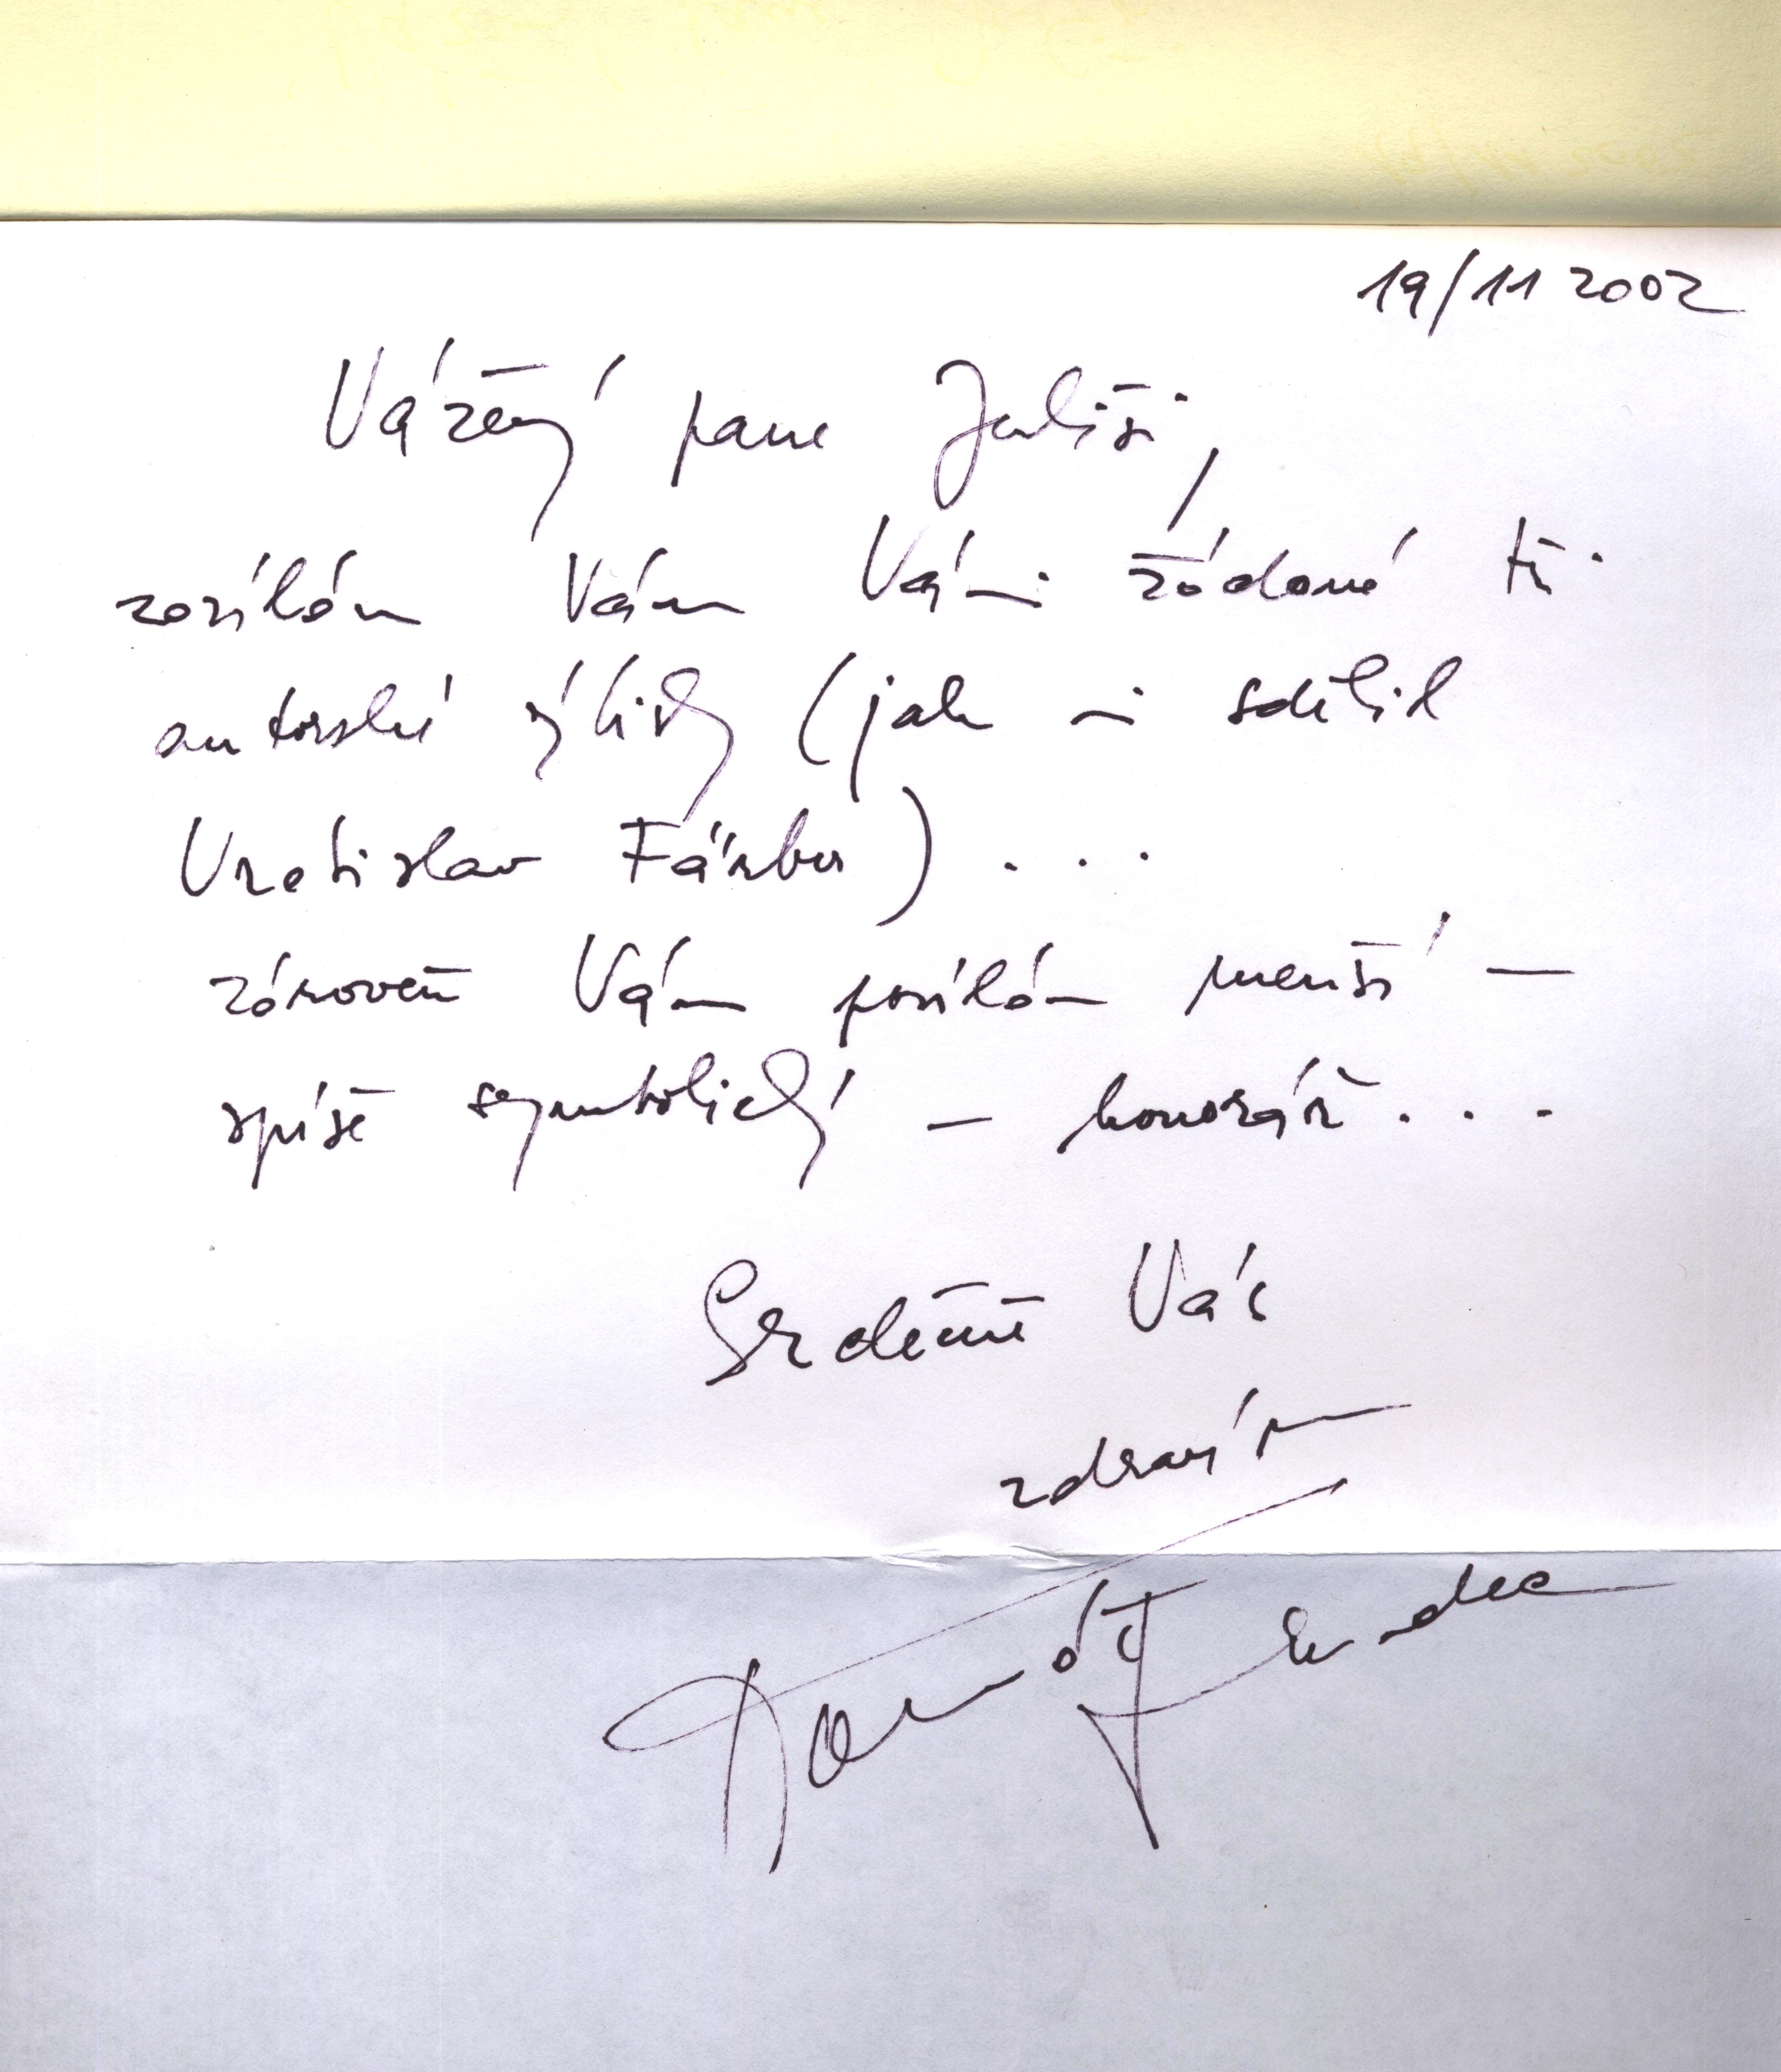 19/11 2002
Vážený pane Juliši,
zasílám Vám Vámi žádané tři
autorské výtisky (jak mi sdělil
Vratislav Färber) ...
zároveň Vám posílám menší –
spíše symbolický – honorář ...
Srdečně Vás
zdravím